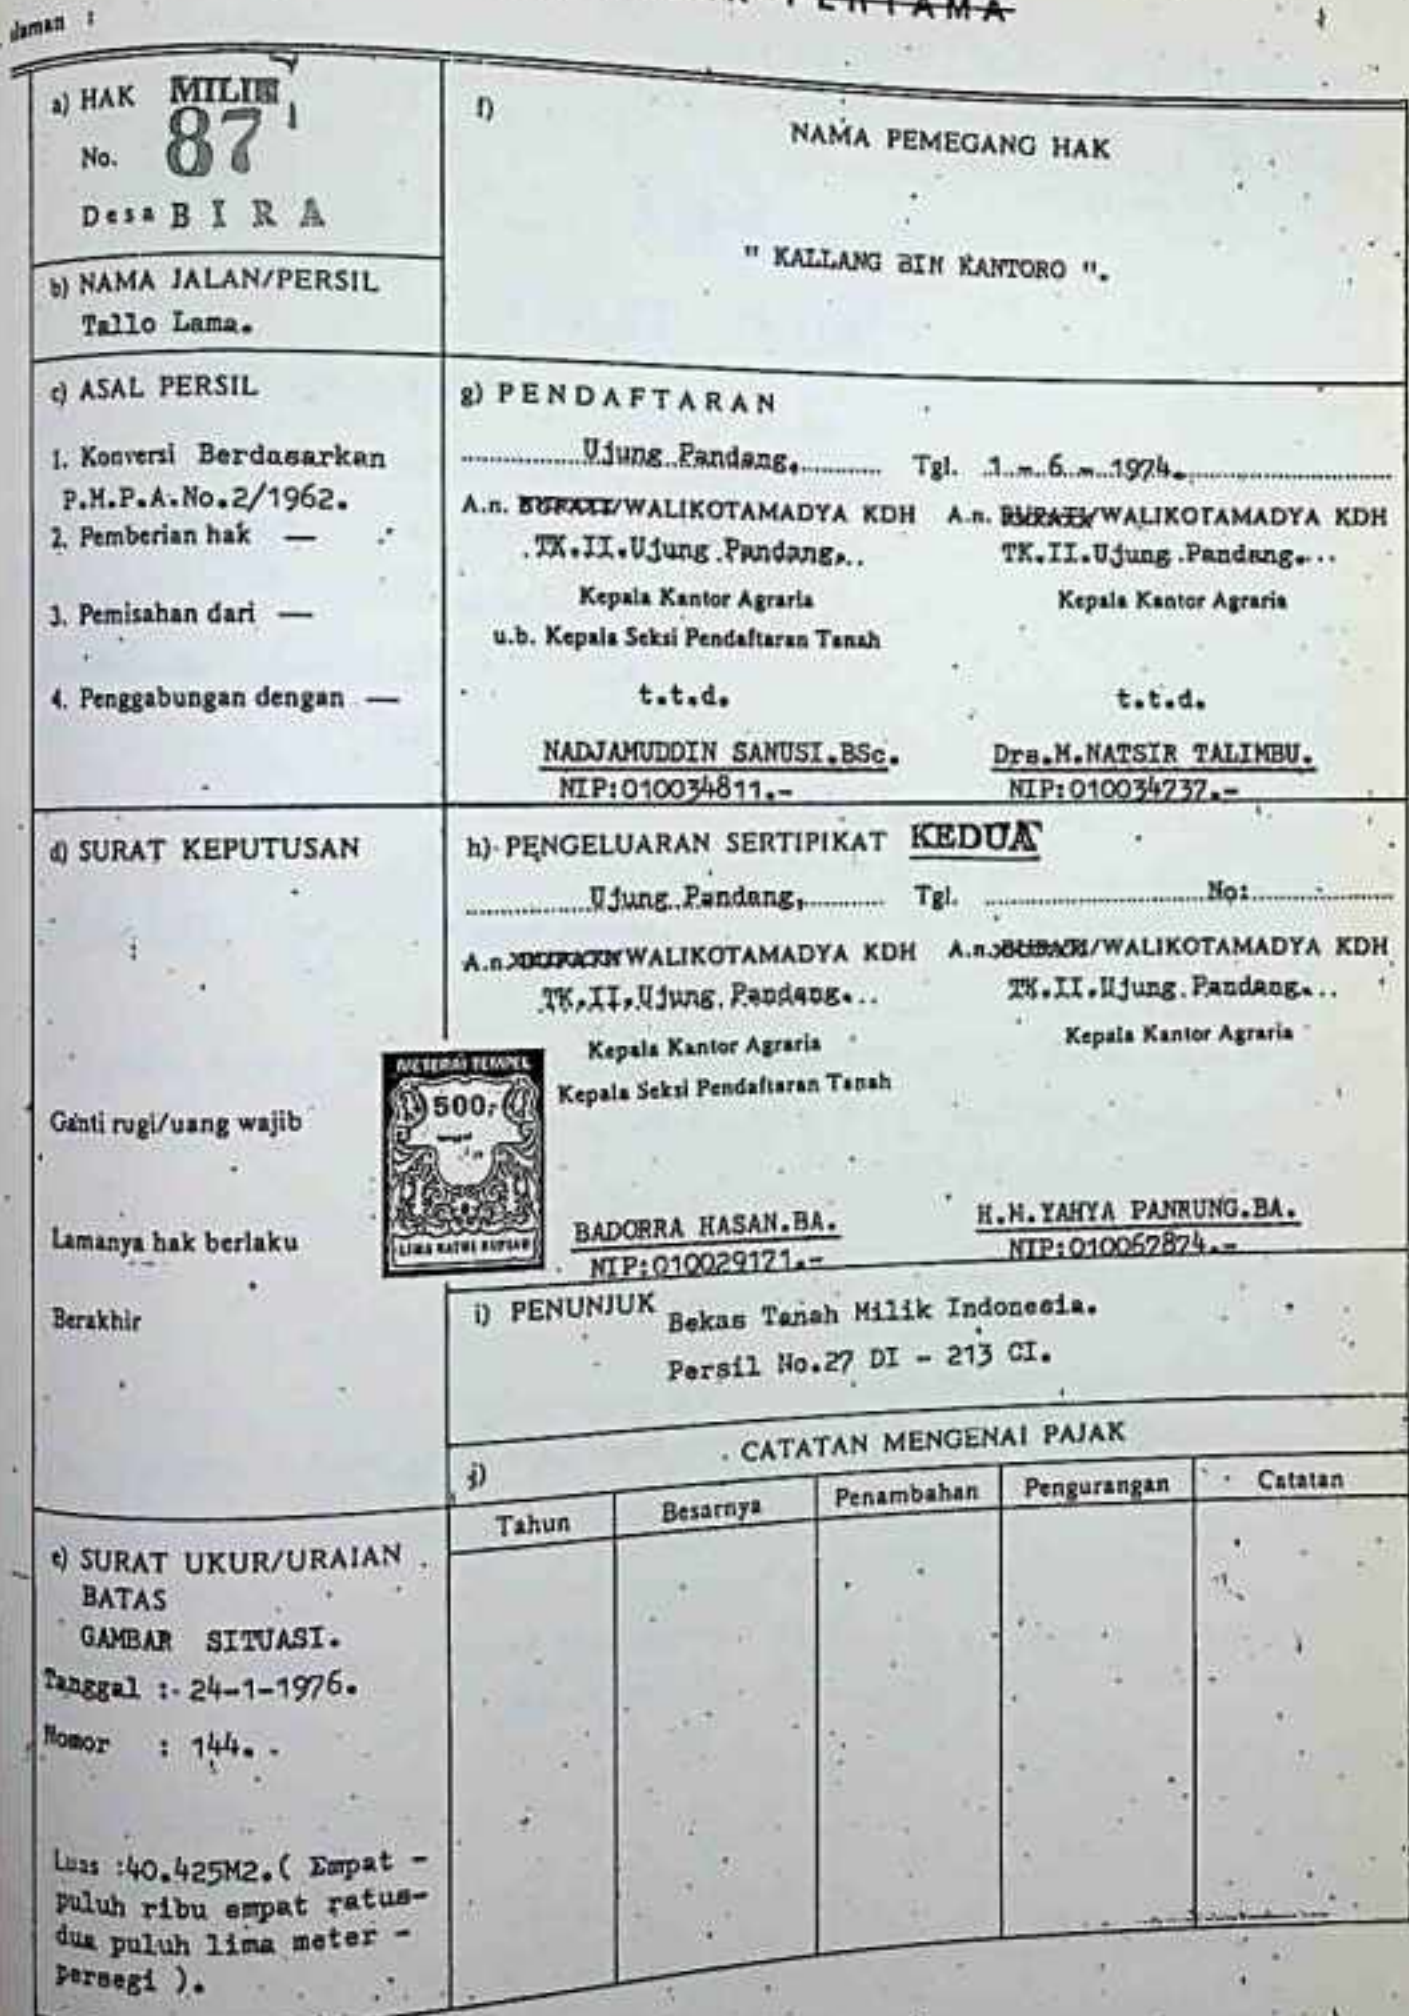 PERTAMA
a) HAK MILIK
No. 87
Desa B I R A
b) NAMA JALAN/PERSIL
Tallo Lama.
c) ASAL PERSIL
1. Konversi Berdasarkan
P.M.P.A.No.2/1962.
2. Pemberian hak —
3. Pemisahan dari —
4. Penggabungan dengan —
d) SURAT KEPUTUSAN
Ganti rugi/uang wajib
Lamanya hak berlaku
Berakhir
e) SURAT UKUR/URAIAN
BATAS
GAMBAR SITUASI.
Tanggal : 24-1-1976.
Nomor : 144.
Luas :40.425M2.( Empat -
puluh ribu empat ratus-
dua puluh lima meter -
persegi ).
f)
NAMA PEMEGANG HAK
" KALLANG BIN KANTORO ".
g) PENDAFTARAN
Ujung Pandang, Tgl. 1 - 6 - 1974.
A.n. BUPATI/WALIKOTAMADYA KDH
TK.II.Ujung Pandang.
Kepala Kantor Agraria
u.b. Kepala Seksi Pendaftaran Tanah
t.t.d.
NADJAMUDDIN SANUSI.BSc.
NIP:010034811.-
A.n. BUPATI/WALIKOTAMADYA KDH
TK.II.Ujung Pandang.
Kepala Kantor Agraria
t.t.d.
Drs.M.NATSIR TALIMBU.
NIP:010034737.-
h) PENGELUARAN SERTIPIKAT KEDUA
Ujung Pandang, Tgl. No:
A.n. WALIKOTAMADYA KDH
TK.II.Ujung Pandang.
Kepala Kantor Agraria
Kepala Seksi Pendaftaran Tanah
BADORRA HASAN.BA.
NIP:010029171.-
A.n. /WALIKOTAMADYA KDH
TK.II.Ujung Pandang.
Kepala Kantor Agraria
H.M.YAHYA PANRUNG.BA.
NIP:010067874.-
METERAI TEMPEL
500,-
LIMA RATUS RUPIAH
i) PENUNJUK Bekas Tanah Milik Indonesia.
Persil No.27 DI - 213 CI.
j) CATATAN MENGENAI PAJAK
Tahun Besarnya Penambahan Pengurangan Catatan